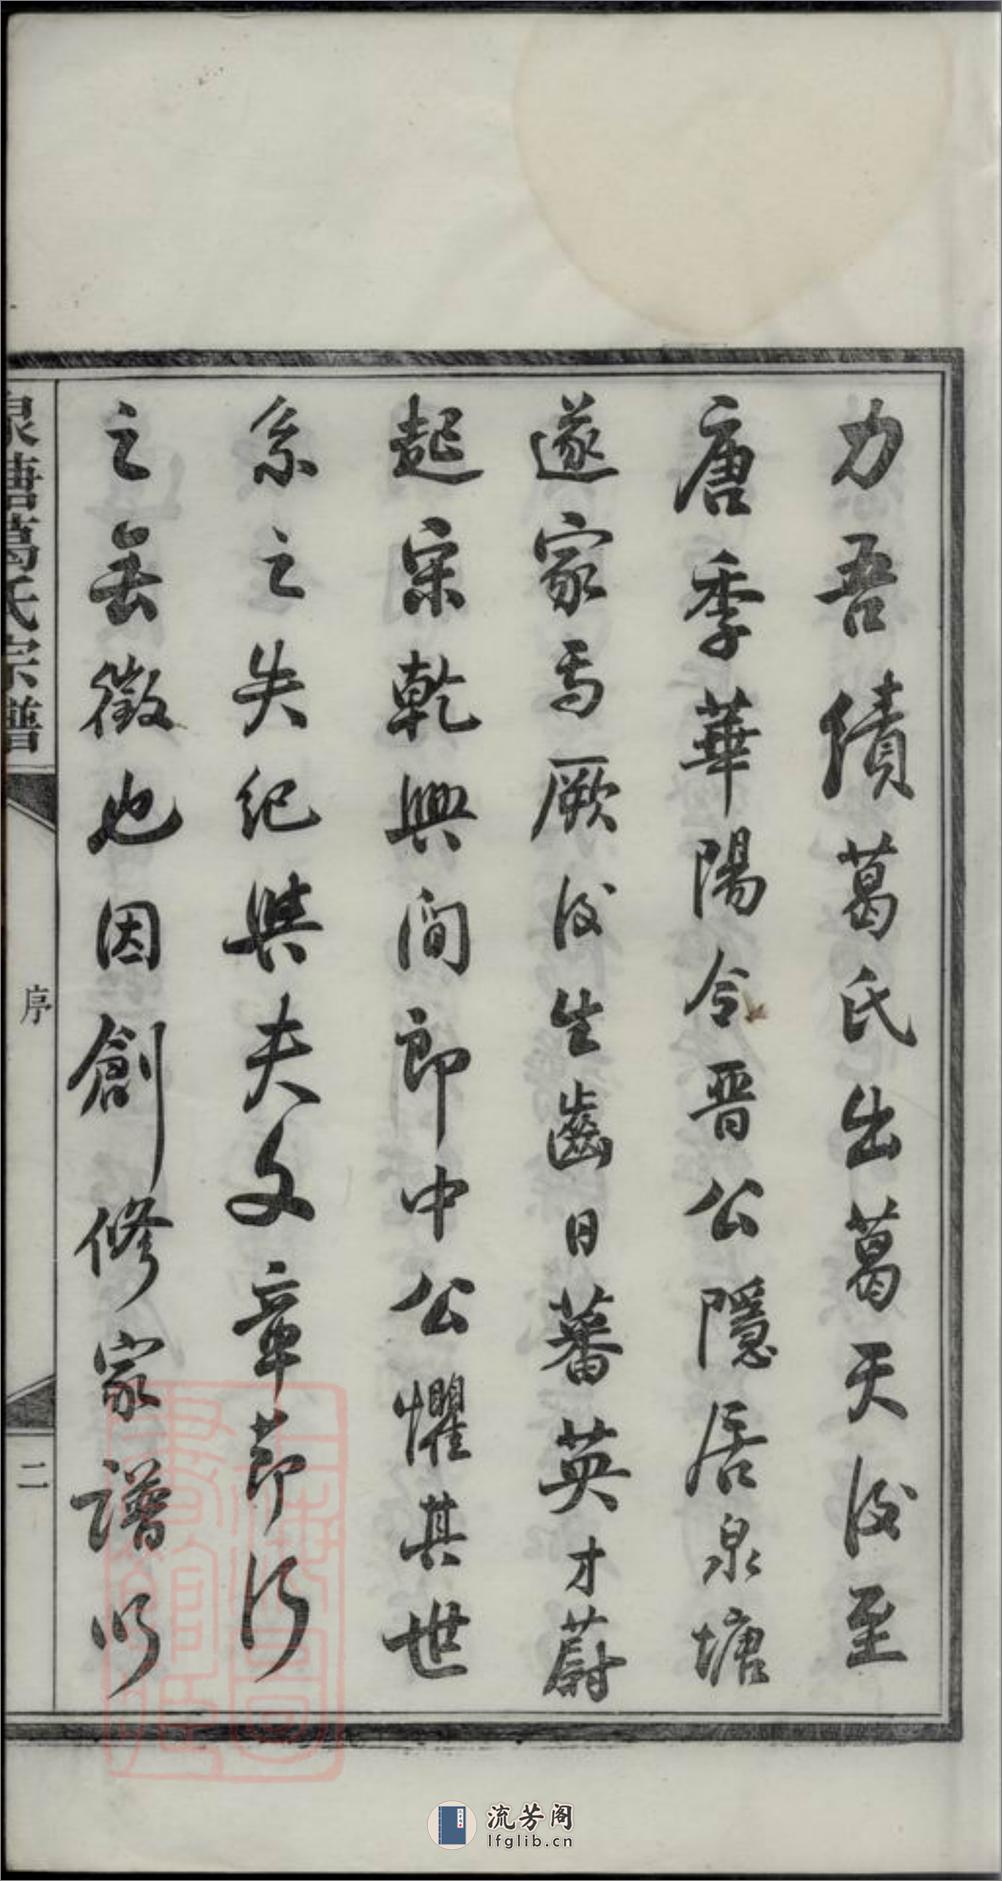 力吾績葛氏出葛天後至
唐季華陽令晋公隱居泉塘
遂家焉厥後生齒日蕃英才蔚
起宋乾興間郎中公懼其世
系之失紀與夫文章節行
之無徵也因創修家譜以
泉塘葛氏宗譜
序
二
流芳阁
lfglib.cn